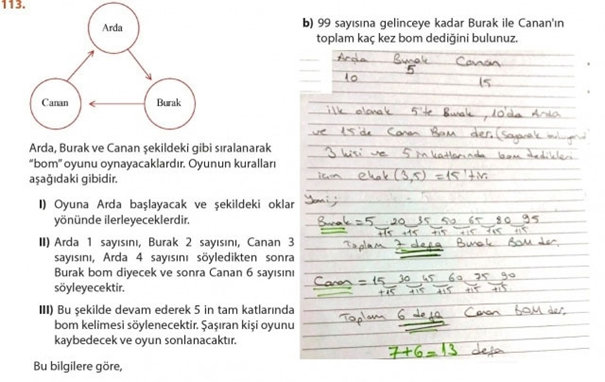 113.
Arda
Canan
Burak
Arda, Burak ve Canan şekildeki gibi sıralanarak
"bom" oyunu oynayacaklardır. Oyunun kuralları
aşağıdaki gibidir.
I) Oyuna Arda başlayacak ve şekildeki oklar
yönünde ilerleyeceklerdir.
II) Arda 1 sayısını, Burak 2 sayısını, Canan 3
sayısını, Arda 4 sayısını söyledikten sonra
Burak bom diyecek ve sonra Canan 6 sayısını
söyleyecektir.
III) Bu şekilde devam ederek 5 in tam katlarında
bom kelimesi söylenecektir. Şaşıran kişi oyunu
kaybedecek ve oyun sonlanacaktır.
Bu bilgilere göre,
b) 99 sayısına gelinceye kadar Burak ile Canan'ın
toplam kaç kez bom dediğini bulunuz.
Arda Burak Canan
10 5 15
ilk olarak 5'te Burak, 10'da Arda
ve 15'de Canan Bom der. (Sayarak
3 kişi ve 5 in katlarında bom dedikleri
için ekok (3,5) = 15'tir.
Yani;
Burak = 5 20 35 50 65 80 95
+15 +15 +15 +15 +15 +15
Toplam 7 defa Burak Bom der.
Canan = 15 30 45 60 75 90
+15 +15 +15 +15 +15
Toplam 6 defa Canan Bom der.
7+6=13 defa